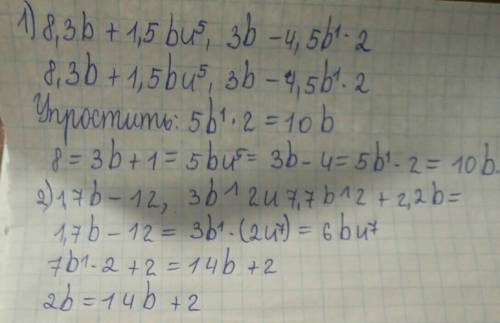 1) 8,3b + 1,5bu⁵, 3b - 4,5b¹·2
8,3b + 1,5bu⁵, 3b - 4,5b¹·2
Упростить: 5b¹·2 = 10b
8 = 3b + 1 = 5bu⁵ = 3b - 4 = 5b¹·2 = 10b.
2) 1,7b - 12, 3b¹ 2u 7,7b¹2 + 2,2b =
1,7b - 12 = 3b¹·(2u⁷) = 6bu⁷
7b¹·2 + 2 = 14b + 2
2b = 14b + 2